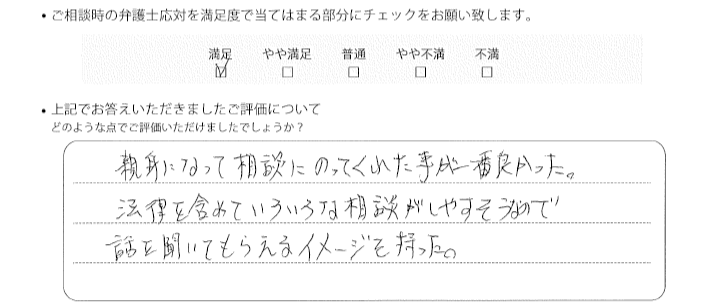 • ご相談時の弁護士応対を満足度で当てはまる部分にチェックをお願い致します。
満足 やや満足 普通 やや不満 不満
☑ □ □ □ □
• 上記でお答えいただきましたご評価について
どのような点でご評価いただけましたでしょうか？
親身になって相談にのってくれた事が一番良かった。
法律を含めていろいろな相談がしやすそうなので
話を聞いてもらえるイメージを持った。